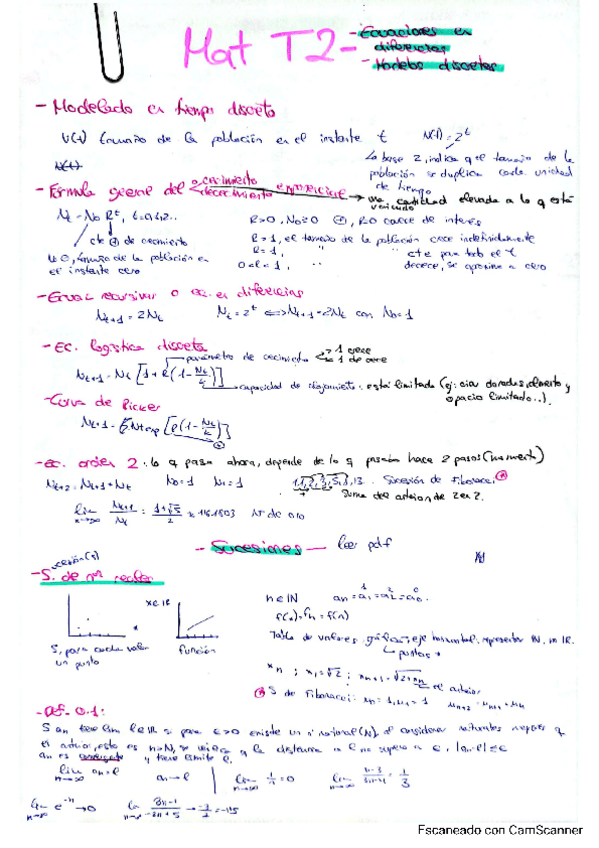 Mat T2 - - Ecuaciones en diferencias
- Modelos discretos
- Modelado en tiempo discreto
N(t) tamaño de la población en el instante t N(t) = 2^t
La base 2, indica q el tamaño de la población se duplica cada unidad de tiempo
- Fórmula general del crecimiento decrecimiento exponencial → una cantidad elevada a lo q está
Nt = No R^t, t=0,1,2...
R>0, No≥0 R<0 carece de interés
cte de crecimiento
R>1, el tamaño de la población crece indefinidamente
t=0, tamaño de la población en el instante cero
R=1, " cte para todo el t
0<R<1, " decrece, se aproxima a cero
- Ecuac. recursivas o ec. en diferencias
Nt+1 = 2Nt Nt = 2^t ⟺ Nt+1 = 2Nt con No=1
- Ec. logística discreta
parámetro de crecimiento >1 crece <1 decrece
Nt+1 = Nt [1+R(1-Nt/K)]
capacidad de alojamiento: está limitada (ej: alimento y espacio limitado...)
- Curva de Ricker
Nt+1 = Nt exp [R(1-Nt/K)]
- ec. orden 2: lo q pasa ahora, depende de lo q pasaba hace 2 pasos (momento)
Nt+2 = Nt+1 + Nt No=1 N1=1 1,1,2,3,5,8,13... Sucesión de Fibonacci
Suma del anterior de 2 en 2.
lim Nt+1/Nt = 1+√5/2 ≈ Nº de oro
- Sucesiones - leer pdf
- S. de nos reales
x∈IR n∈IN
f(n)=fn=f(n)
S, para cada valor un punto
función
Tabla de valores, gráfica, eje horizontal, representar IN, en IR.
puntos
xn ; x1=√2 ; xn+1=√2+xn el anterior
S de Fibonacci: u0=1, u1=1 un+2 = un+1+un
- Def- 0.1:
S an tiene lim l∈IR si para ε>0 existe un nº natural (N), al considerar naturales mayores q
el anterior, esto es n>N, se verifica q la distancia a l no supera a ε, |an-l|≤ε
an es convergente y tiene límite l.
lim n→∞ an=l an→l lim n→∞ 1/n=0 lim n→∞ n-3/3n+4 = 1/3
lim n→∞ e^-n → 0 lim n→∞ 3n-1/-2n+5
Escaneado con CamScanner